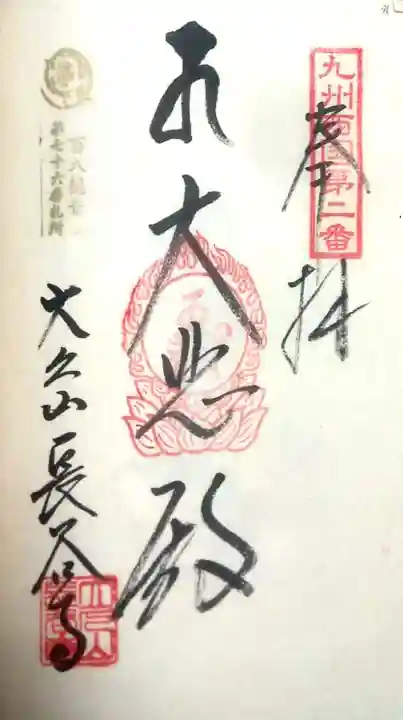 九州西国第二番
奉拝
大悲殿
百八
第七十六番札所
大久山長谷寺